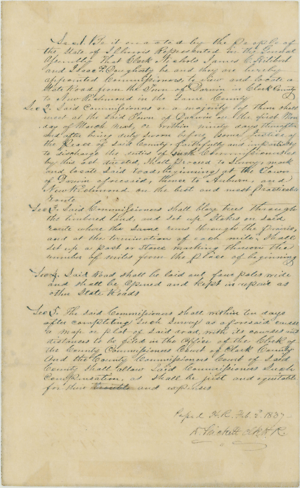 Sec 1. Be it enacted by the People of
the State of Illinois Represented in the General
Assembly That Clark
and Isaac Daugherty be and they are hereby
appointed Commissioners to view and locate a
State Road from the Town of Darwin in Clark County
to New Richmond in the Same County
Sec 2. Said Commissioners or a majority of them shall
meet at the said Town of Darwin on the first Mon
day of March next, or within days thereafter
and after being duly sworn before Some Justice of
the Peace of said County faithfully and impartially
to discharge the duties of such Commissioners
by this act directed, Shall proceed to Survey, mark
and locate Said road beginning at the Town
of Darwin aforesaid, thence to
New Richmond on the best and most Practicable
route
Sec 3. Said Commissioners shall blaze trees through
the timbered land, and set up Stakes on said
route where the Same runs through the prairie,
and at the termination of each mile, Shall
set up a Post or Stone marking thereon the
number of miles from the place of beginning
Sec 4. Said Road shall be laid out four poles wide
and shall be opened and kept in repair as
other State Roads
Sec 5. The said Commissioners shall within ten days
after completing such Survey as aforesaid cause
a map or plat of Said road with its courses and
distances to be filed in the Office of the Clerk of
the County Commissioners Court of Clark County
And the County Commissioners Court of Said
County Shall allow Said Commissioners Such
Compensation, as shall be just and equitable
for their and expenses
Feb. 2 1837